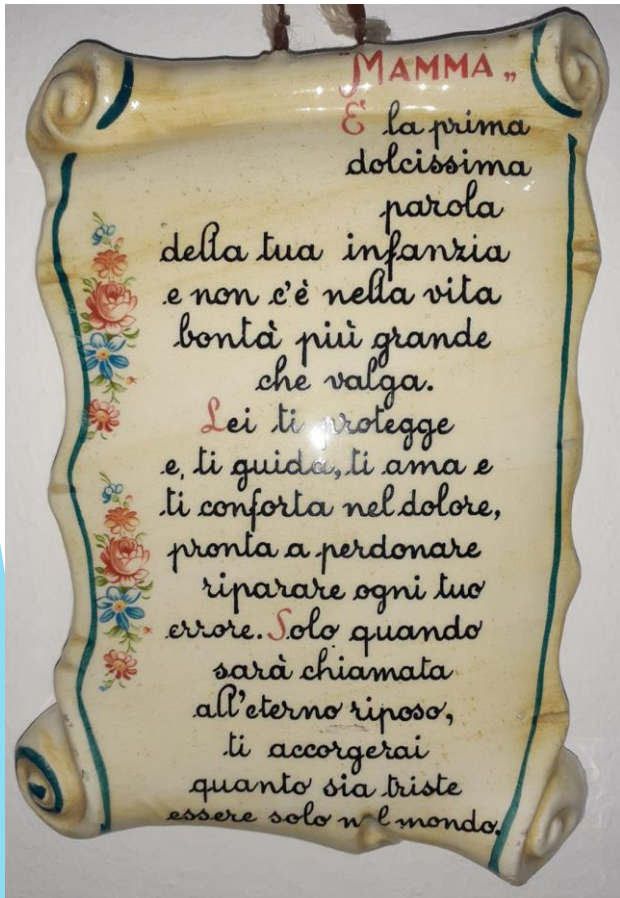 "MAMMA„
E' la prima
dolcissima
parola
della tua infanzia
e non c'è nella vita
bontà più grande
che valga.
Lei ti protegge
e, ti guida, ti ama e
ti conforta nel dolore,
pronta a perdonare
riparare ogni tuo
errore. Solo quando
sarà chiamata
all'eterno riposo,
ti accorgerai
quanto sia triste
essere solo nel mondo.